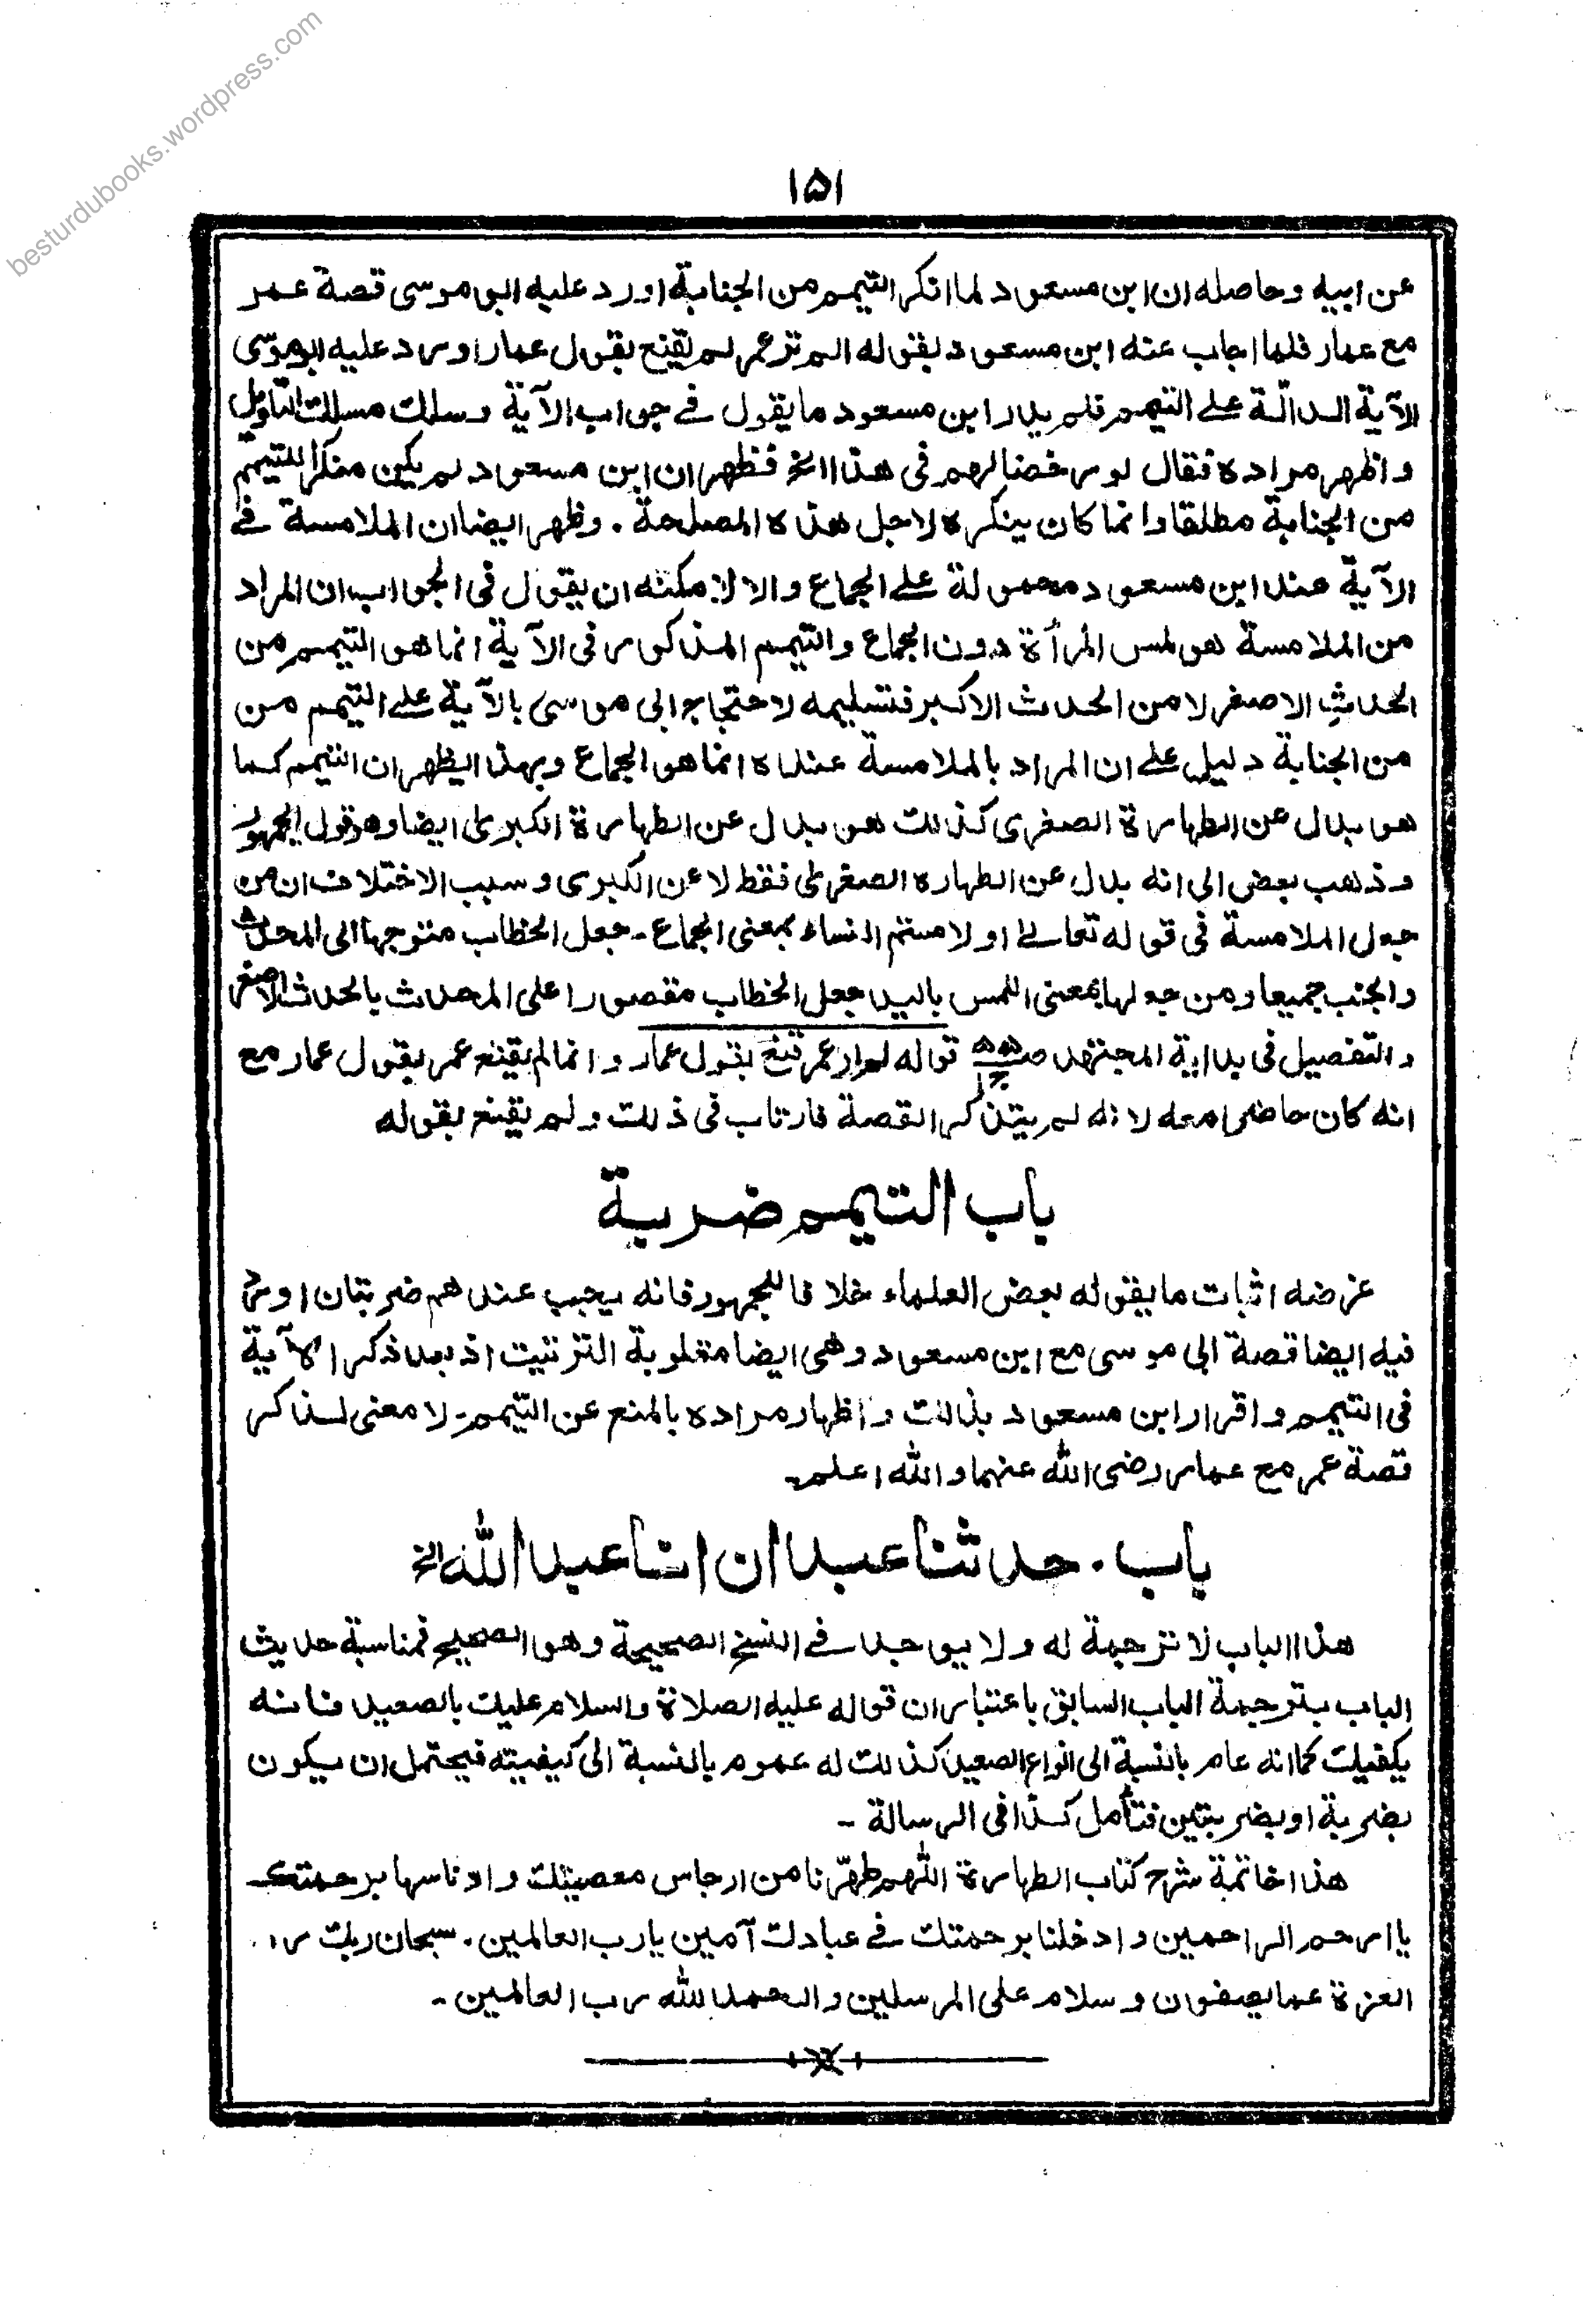 besturdubooks.wordpress.com
١٥١
عن ابيه وحاصله ان ابن مسعود لما انكر التيمم من الجنابة اورد عليه ابو موسى قصة عمر
مع عمار فلما اجاب عنه ابن مسعود بقوله الم تر عمر لم يقنع بقول عمار اورد عليه ابو موسى
الآية الدالّة على التيمم فلم يدر ابن مسعود ما يقول في جواب الآية وسلك مسلك التاويل
واظهر مراده فقال لو رخصنا لهم في هذا الخ فظهر ان ابن مسعود لم يكن منكرا للتيمم
من الجنابة مطلقا وانما كان ينكره لاجل هذه المصلحة. وظهر ايضا ان الملامسة في
الآية عند ابن مسعود محمولة على الجماع والا لامكنه ان يقول في الجواب ان المراد
من الملامسة هو لمس المرأة دون الجماع والتيمم المذكور في الآية انما هو التيمم من
الحدث الاصغر لا من الحدث الاكبر فتسليمه لاحتجاج ابى موسى بالآية على التيمم من
من الجنابة دليل على ان المراد بالملامسة عنده انما هو الجماع وبهذا يظهر ان التيمم كما
هو بدل عن الطهارة الصغرى كذلك هو بدل عن الطهارة الكبرى ايضا وهو قول الجمهور
وذهب بعض الى انه بدل عن الطهاره الصغرى فقط لا عن الكبرى وسبب الاختلاف ان من
جعل الملامسة في قوله تعالى او لامستم النساء بمعنى الجماع - جعل الخطاب متوجها الى المحدث
والجنب جميعا ومن جعلها بمعنى اللمس باليد جعل الخطاب مقصورا على المحدث بالحدث الاصغر
والتفصيل في بداية المجتهد قوله لم ار عمر قنع بقول عمار وانما لم يقنع عمر بقول عمار مع
انه كان حاضرا معه لانه لم يتذكر القصة فارتاب في ذلك ولم يقنع بقوله
باب التيمم ضربة
غرضه اثبات ما يقوله بعض العلماء خلافا للجمهور فانه يجب عندهم ضربتان اورد
فيه ايضا قصة ابى موسى مع ابن مسعود وهى ايضا مقلوبة الترتيب اذ بعد ذكر الآية
في التيمم واقرار ابن مسعود بذلك واظهار مراده بالمنع عن التيمم- لا معنى لذكر
قصة عمر مع عمار رضى الله عنهما والله اعلم-
باب . حدثنا عبدان انا عبد الله الخ
هذا الباب لا ترجمة له ولا يوجد في النسخ الصحيحة وهو الصحيح فمناسبة حديث
الباب بترجمة الباب السابق باعتبار ان قوله عليه الصلاة والسلام عليك بالصعيد فانه
يكفيك كما انه عام بالنسبة الى انواع الصعيد كذلك له عموم بالنسبة الى كيفيته فيحتمل ان يكون
بضربة او بضربتين فتأمل كذا في الرسالة -
هذا خاتمة شرح كتاب الطهارة اللهم طهّرنا من ارجاس معصيتك وادناسها برحمتك
يا ارحم الراحمين وادخلنا برحمتك في عبادك آمين يا رب العالمين. سبحان ربك رب
العزة عما يصفون وسلام على المرسلين والحمد لله رب العالمين -